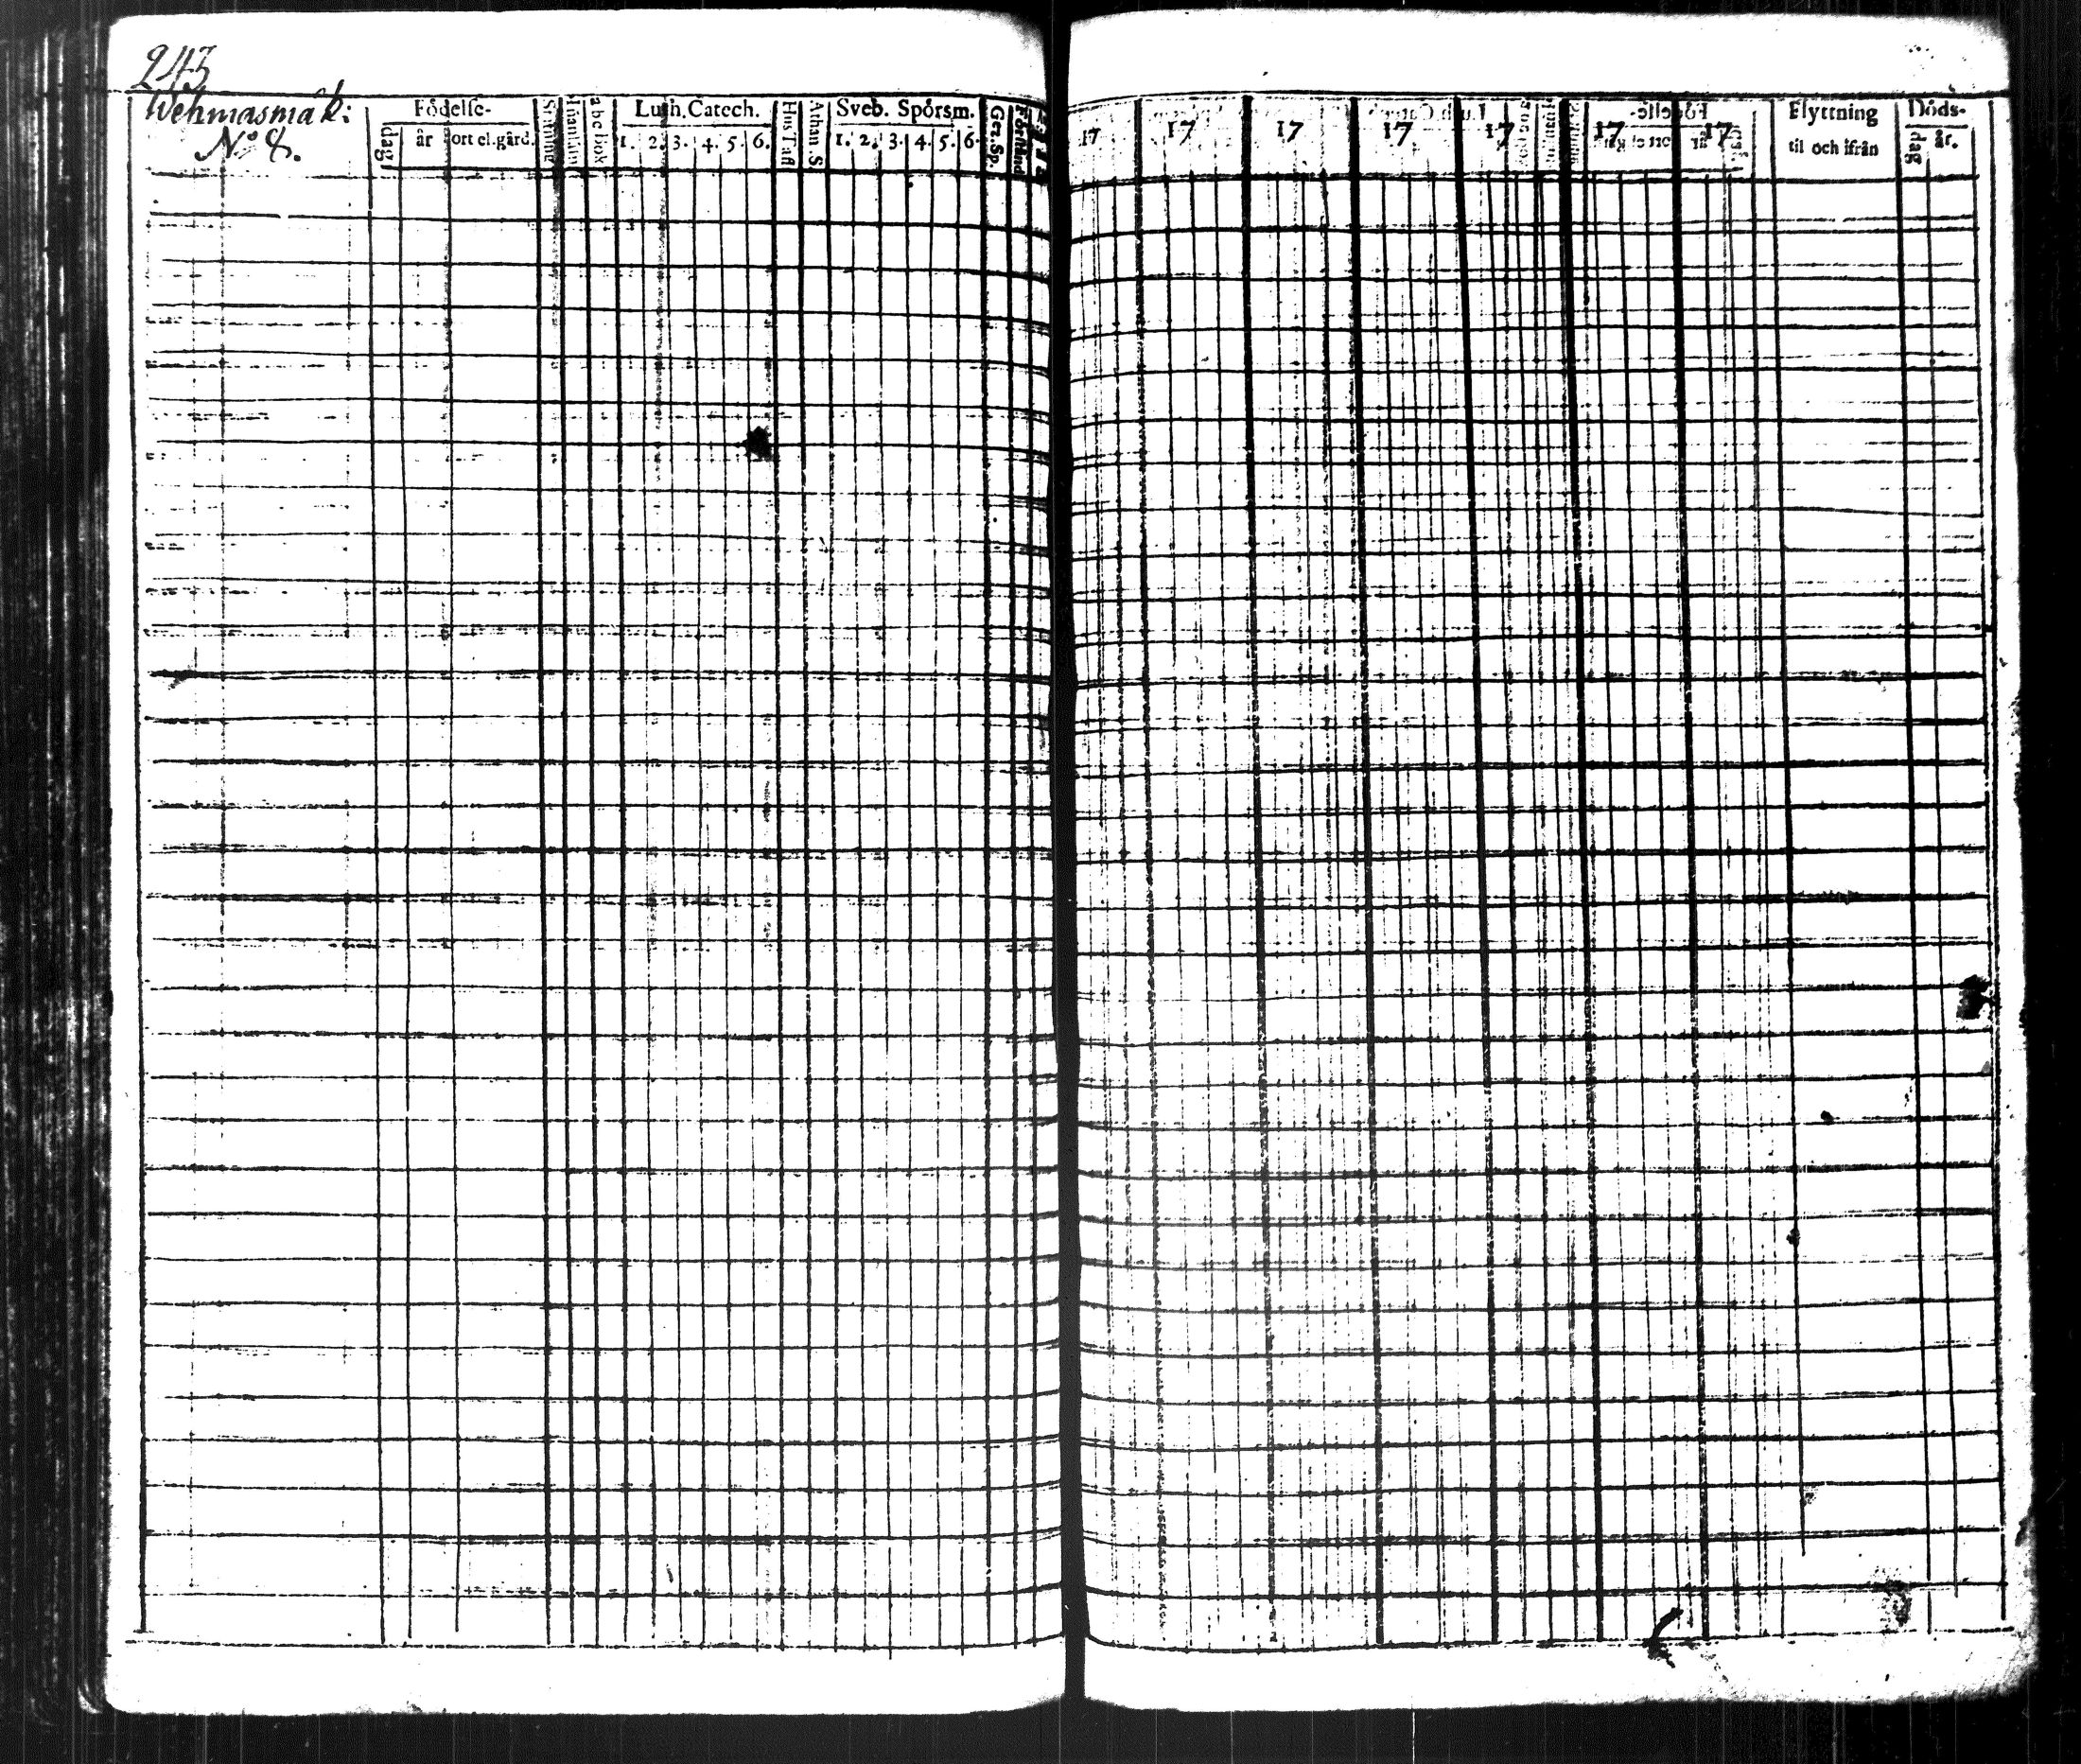 243
Wehmasmäk:
No 8.
Födelse-
dag
år
ort el. gård.
a b c bok
Luth. Catech.
1. 2. 3. 4. 5. 6.
Hus Tafl
Athan. S.
Sveb. Spörsm.
1. 2. 3. 4. 5. 6.
Ger. Sp.
Förstånd
17 17 17 17 17 17 17
Flyttning
til och ifrån
Döds-
dag
år.